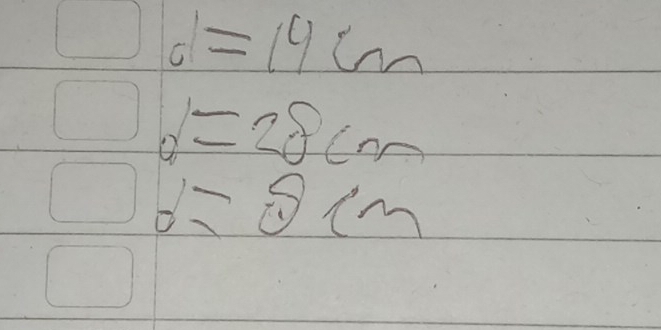 d=14 cm
d=28 cm
d= 8 cm